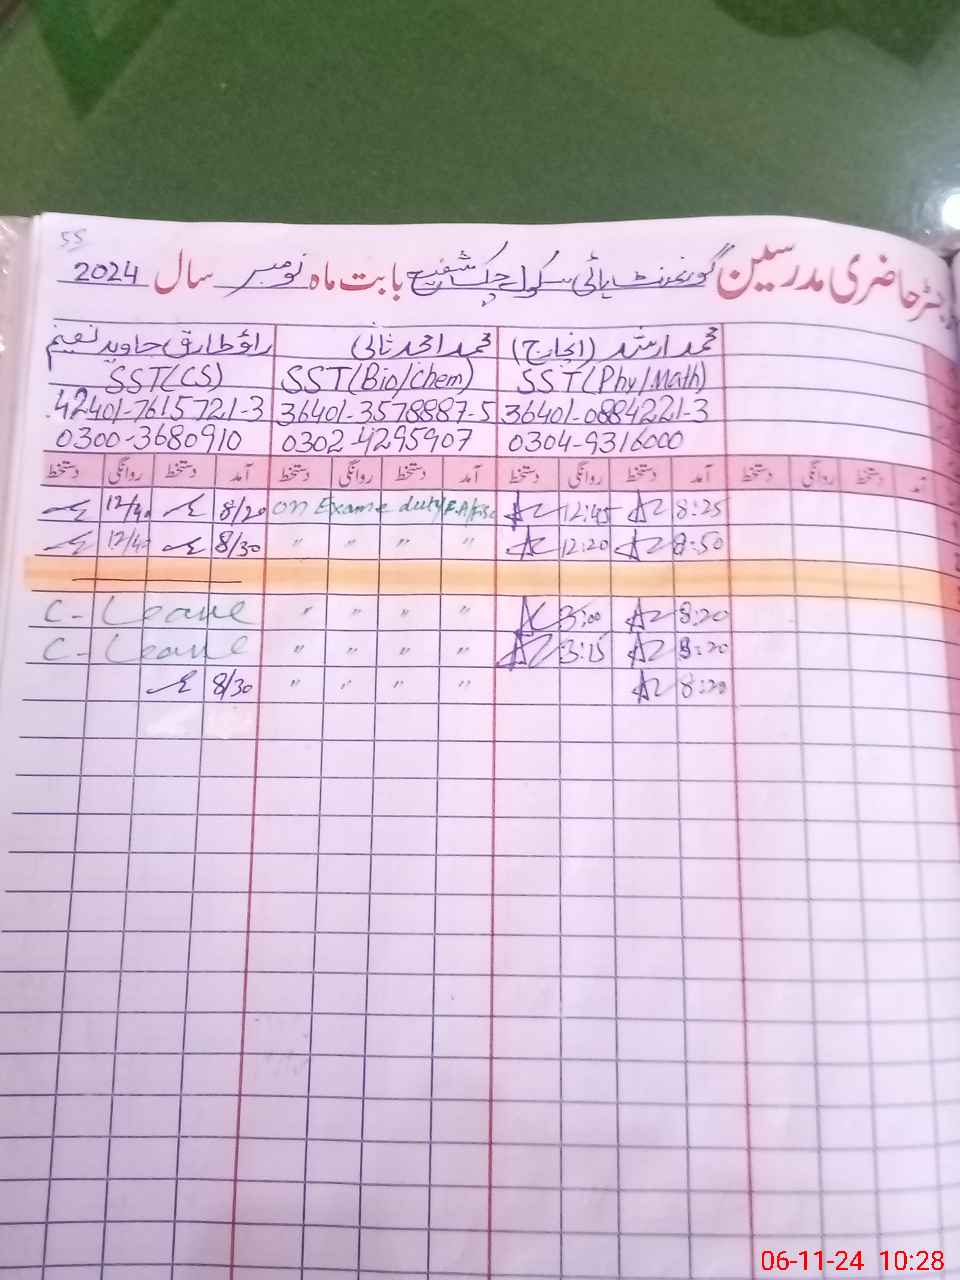 55
رجسٹر حاضری مدرسین گورنمنٹ ہائی سکول چک شفیع بابت ماہ نومبر سال 2024
محمد ارشد (انچارج) محمد احمد ثانی راؤ طارق جاوید نعیم
SST(CS) SST(Bio/Chem) SST(Phy/Math)
42401-7615721-3 36401-3578887-5 36401-0884221-3
0300-3680910 0302-4295907 0304-9316000
آمد دستخط روانگی دستخط آمد دستخط روانگی دستخط آمد دستخط روانگی دستخط آمد دستخط روانگی دستخط
12/40 8/20 on Exame duty 12:45 8:25
12/40 8/30 " " " " 12:20 8:50
C- Leave " " " " 3:00 8:20
C- Leave " " " " 3:15 8:20
8/30 " " " " 8:20
06-11-24 10:28